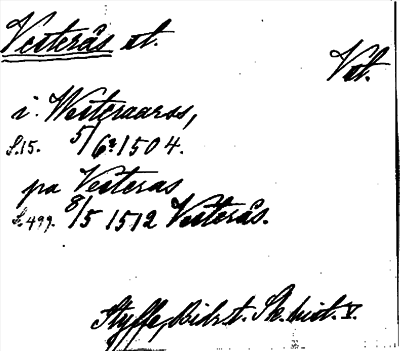 Vesterås st.
Vst.
i Westeraarss,
S.15. 5/6 1504.
pa Vesteras
S.499. 8/5 1512 Vesterås.
Styffe, Bidr. t. Sk. hist. V.